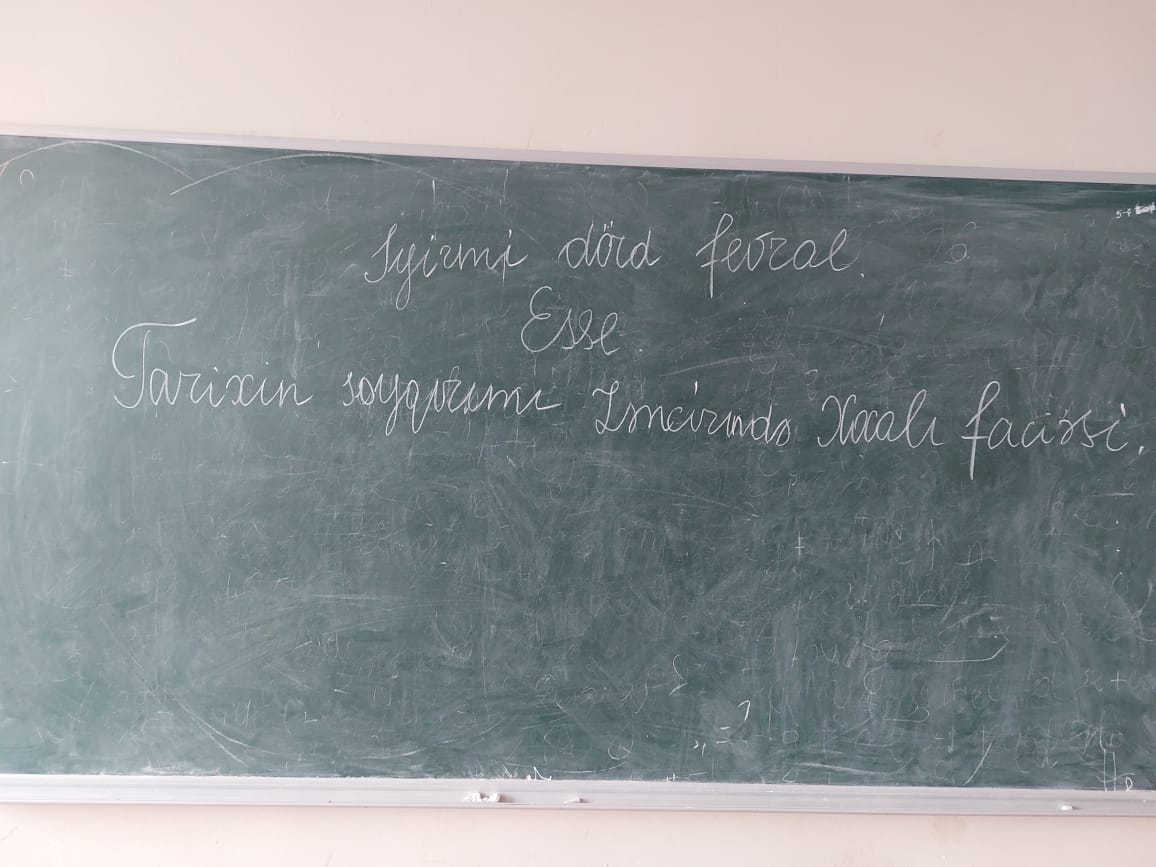 İyirmi dörd fevral.
Esse.
Tarixin soyqırımı zəncirində Xocalı faciəsi.